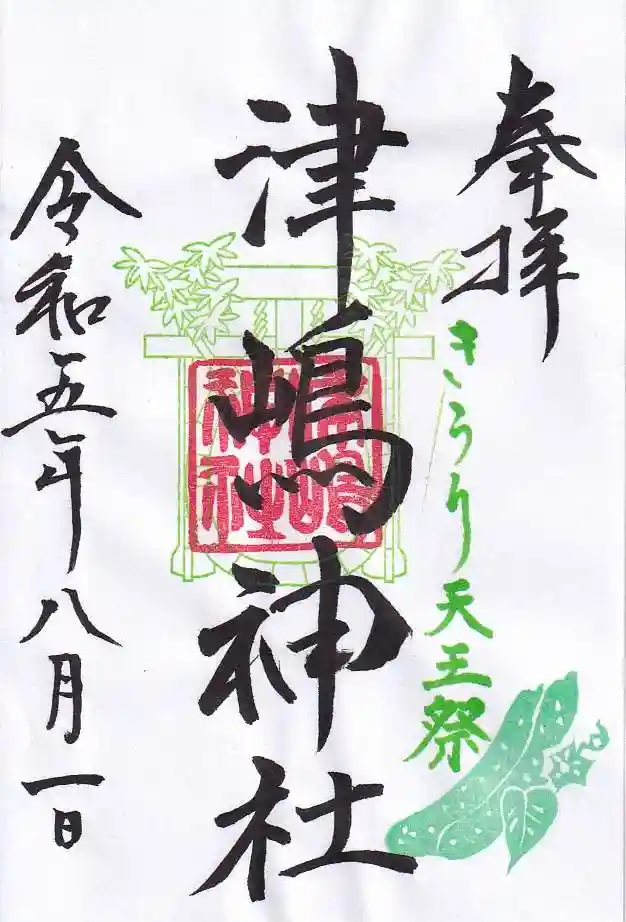 奉拝
きうり天王祭
津嶋神社
津嶋神社
令和五年八月一日